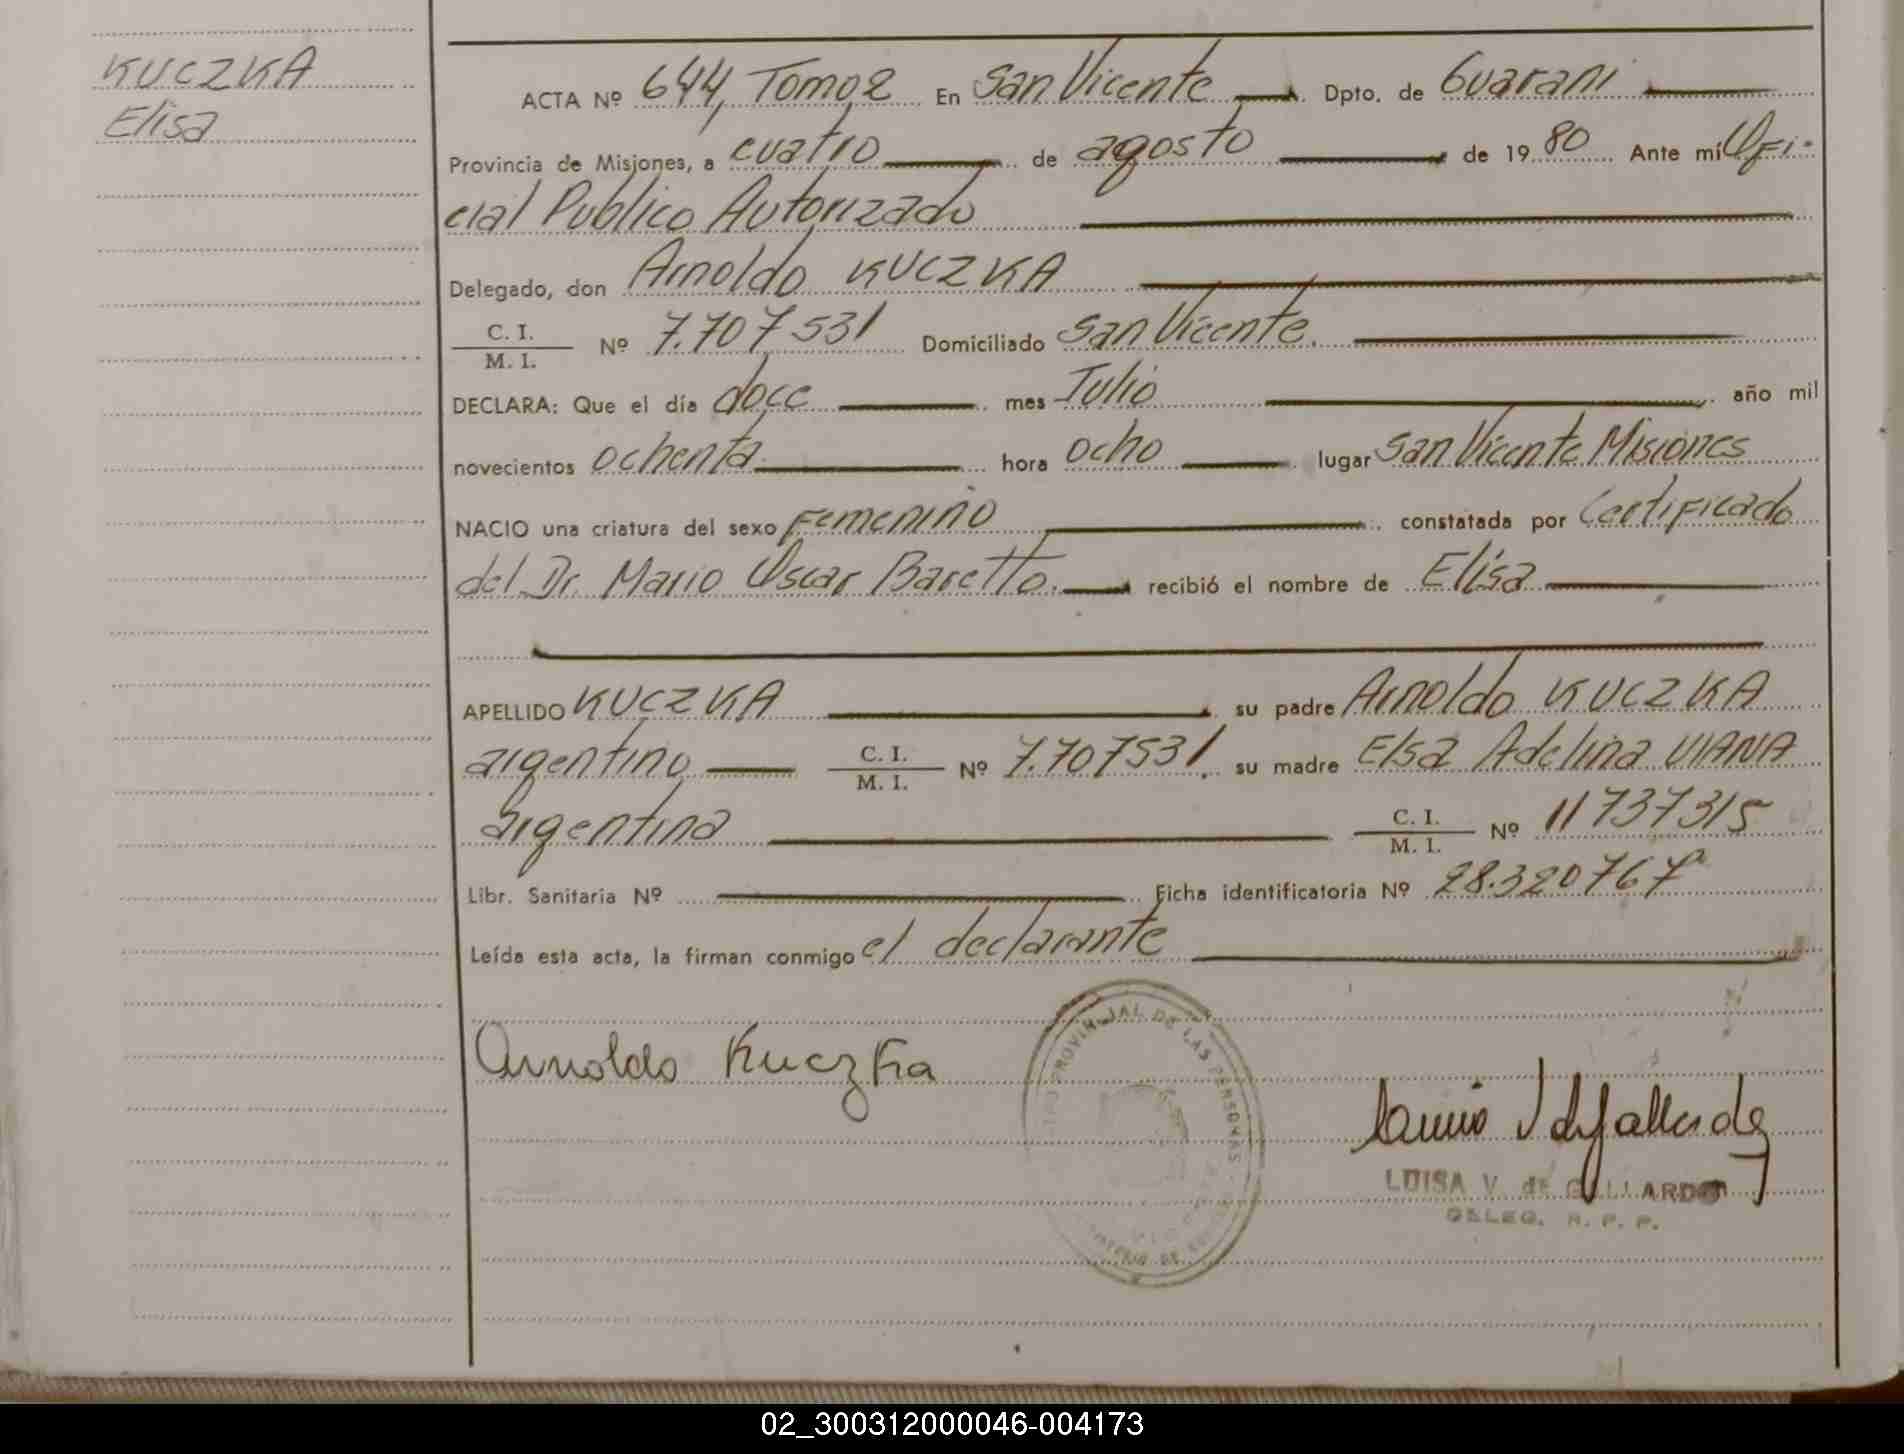 KUCZKA
Elisa
ACTA Nº 644, Tomo 2 En San Vicente Dpto. de Guarani
Provincia de Misiones, a cuatro de agosto de 1980 Ante mí Ofi-
cial Publico Autorizado
Delegado, don Arnoldo KUCZKA
C. I.
M. I. Nº 7.707531 Domiciliado San Vicente.
DECLARA: Que el día doce mes Julio año mil
novecientos ochenta hora ocho lugar San Vicente Misiones
NACIO una criatura del sexo Femenino constatada por Certificado
del Dr. Mario Oscar Baretto. recibió el nombre de Elisa
APELLIDO KUCZKA su padre Arnoldo KUCZKA
argentino C. I.
M. I. Nº 7.707531. su madre Elsa Adelina VIANA
argentina C. I.
M. I. Nº 11737315
Libr. Sanitaria Nº Ficha identificatoria Nº 28.320767
Leída esta acta, la firman conmigo el declarante
Arnoldo Kuczka
PROVINCIAL DE LAS PERSONAS
LUISA V. de GALLARDO
DELEG. R. P. P.
02_300312000046-004173